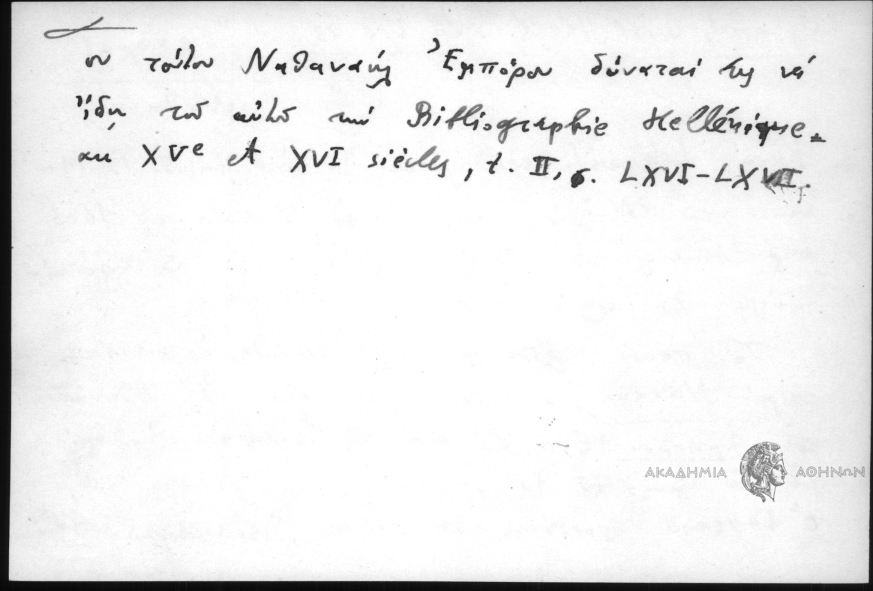 ου τούτου Ναθαναήλ Ἐμπόρου δύναταί τις νά
ἴδῃ τοῦ αὐτοῦ τήν Bibliographie Hellénique
XVe et XVI siècles, τ. II, σ. LXVI-LXVII.
ΑΚΑΔΗΜΙΑ ΑΘΗΝΩΝ